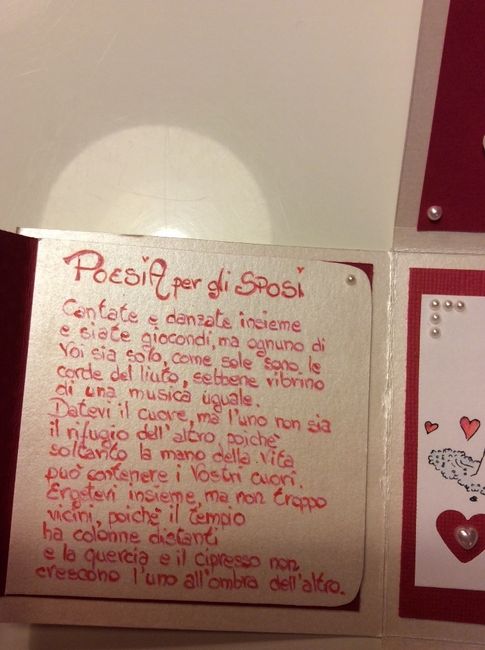 POESIA per gli SPOSI
Cantate e danzate insieme
e siate giocondi, ma ognuno di
voi sia solo, come sole sono le
corde del liuto, sebbene vibrino
di una musica uguale.
Datevi il cuore, ma l'uno non sia
il rifugio dell'altro poiché
soltanto la mano della Vita
può contenere i Vostri cuori.
Ergetevi insieme, ma non troppo
vicini, poiché il tempio
ha colonne distanti
e la quercia e il cipresso non
crescono l'uno all'ombra dell'altro.